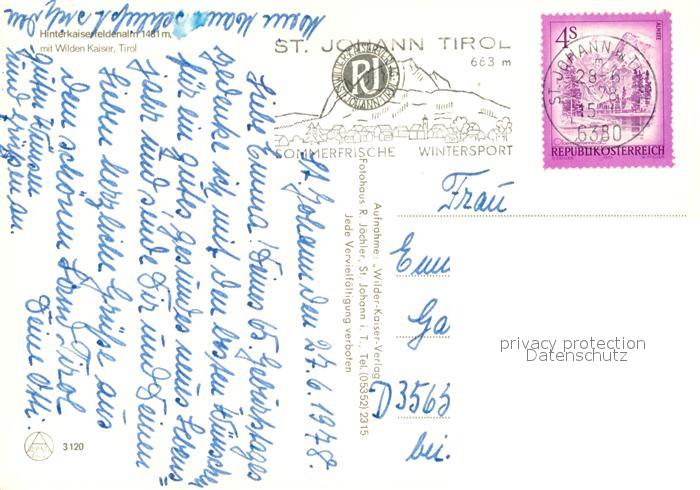 Hinterkaiserfeldenalm 1481 m,
mit Wilden Kaiser, Tirol
ST. JOHANN TIROL
663 m
SOMMERFRISCHE WINTERSPORT
4S
ALMSEE
REPUBLIK ÖSTERREICH
ST. JOHANN IN TIROL
28.-6.
6380
St. Johann den 27.6.1978.
Liebe Emma! Deines 65. Geburtstages
gedenke ich mit den besten Wünschen
für ein gutes, gesundes neues Lebens=
jahr und sende Dir und Deinen
Lieben herzliche Grüße aus
dem schönen Land Tirol
Deine Otti.
Aufnahme: „Wilder-Kaiser-Verlag"
Fotohaus R. Jöchler, St. Johann i. T., Tel. (05352) 2315
Jede Vervielfältigung verboten
Frau
Emm
Ga
D3563
bei.
privacy protection
Datenschutz
3120